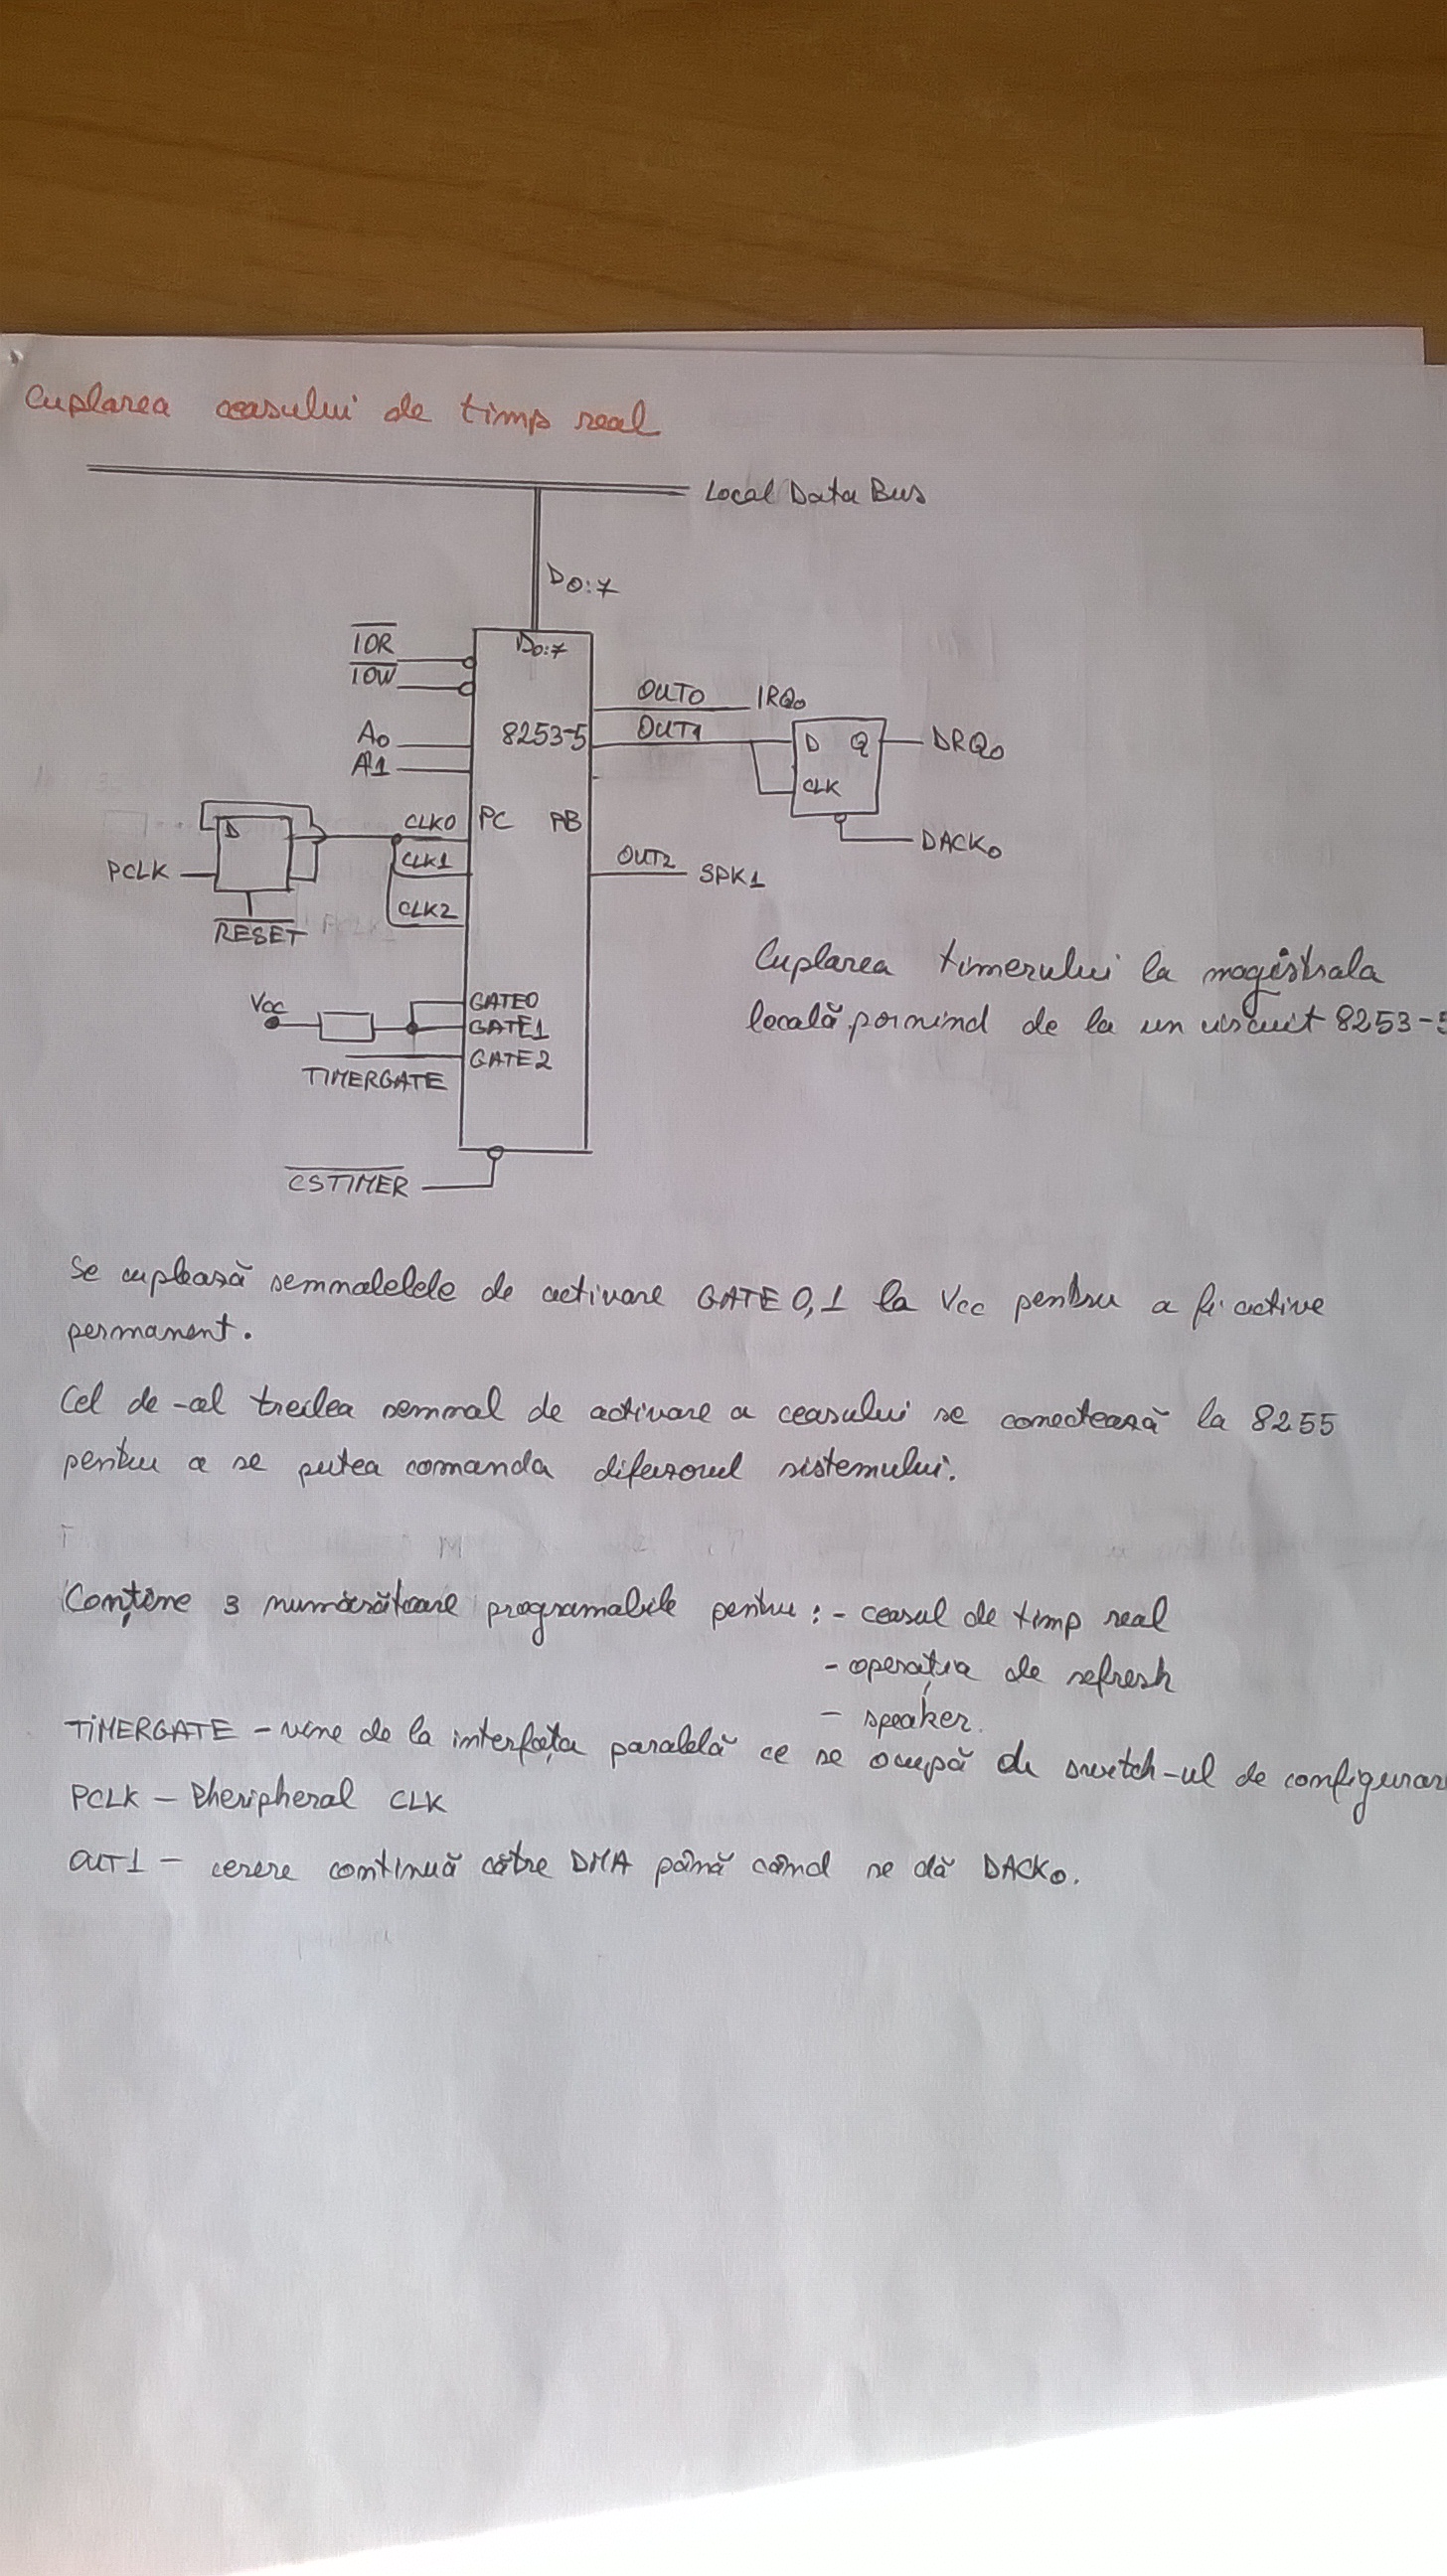 Cuplarea ceasului de timp real
Local Data Bus
D0:7
IOR
IOW
D0:7
A0
A1
8253-5
OUT0 IRQ0
OUT1
D Q
DRQ0
CLK
DACK0
D
PCLK
RESET
CLK0
CLK1
CLK2
PC PB
OUT2 SPK1
Cuplarea timerului la magistrala
locală pornind de la un circuit 8253-5
Vcc
GATE0
GATE1
GATE2
TIMERGATE
CSTIMER
Se cuplează semnalelele de activare GATE 0,1 la Vcc pentru a fi active
permanent.
Cel de-al treilea semnal de activare a ceasului se conectează la 8255
pentru a se putea comanda difuzorul sistemului.
Conține 3 numărătoare programabile pentru: - ceasul de timp real
- operația de refresh
- speaker.
TIMERGATE - vine de la interfața paralelă ce se ocupă de switch-ul de configurar
PCLK - Pheripheral CLK
OUT1 - cerere continuă către DMA până când se dă DACK0.